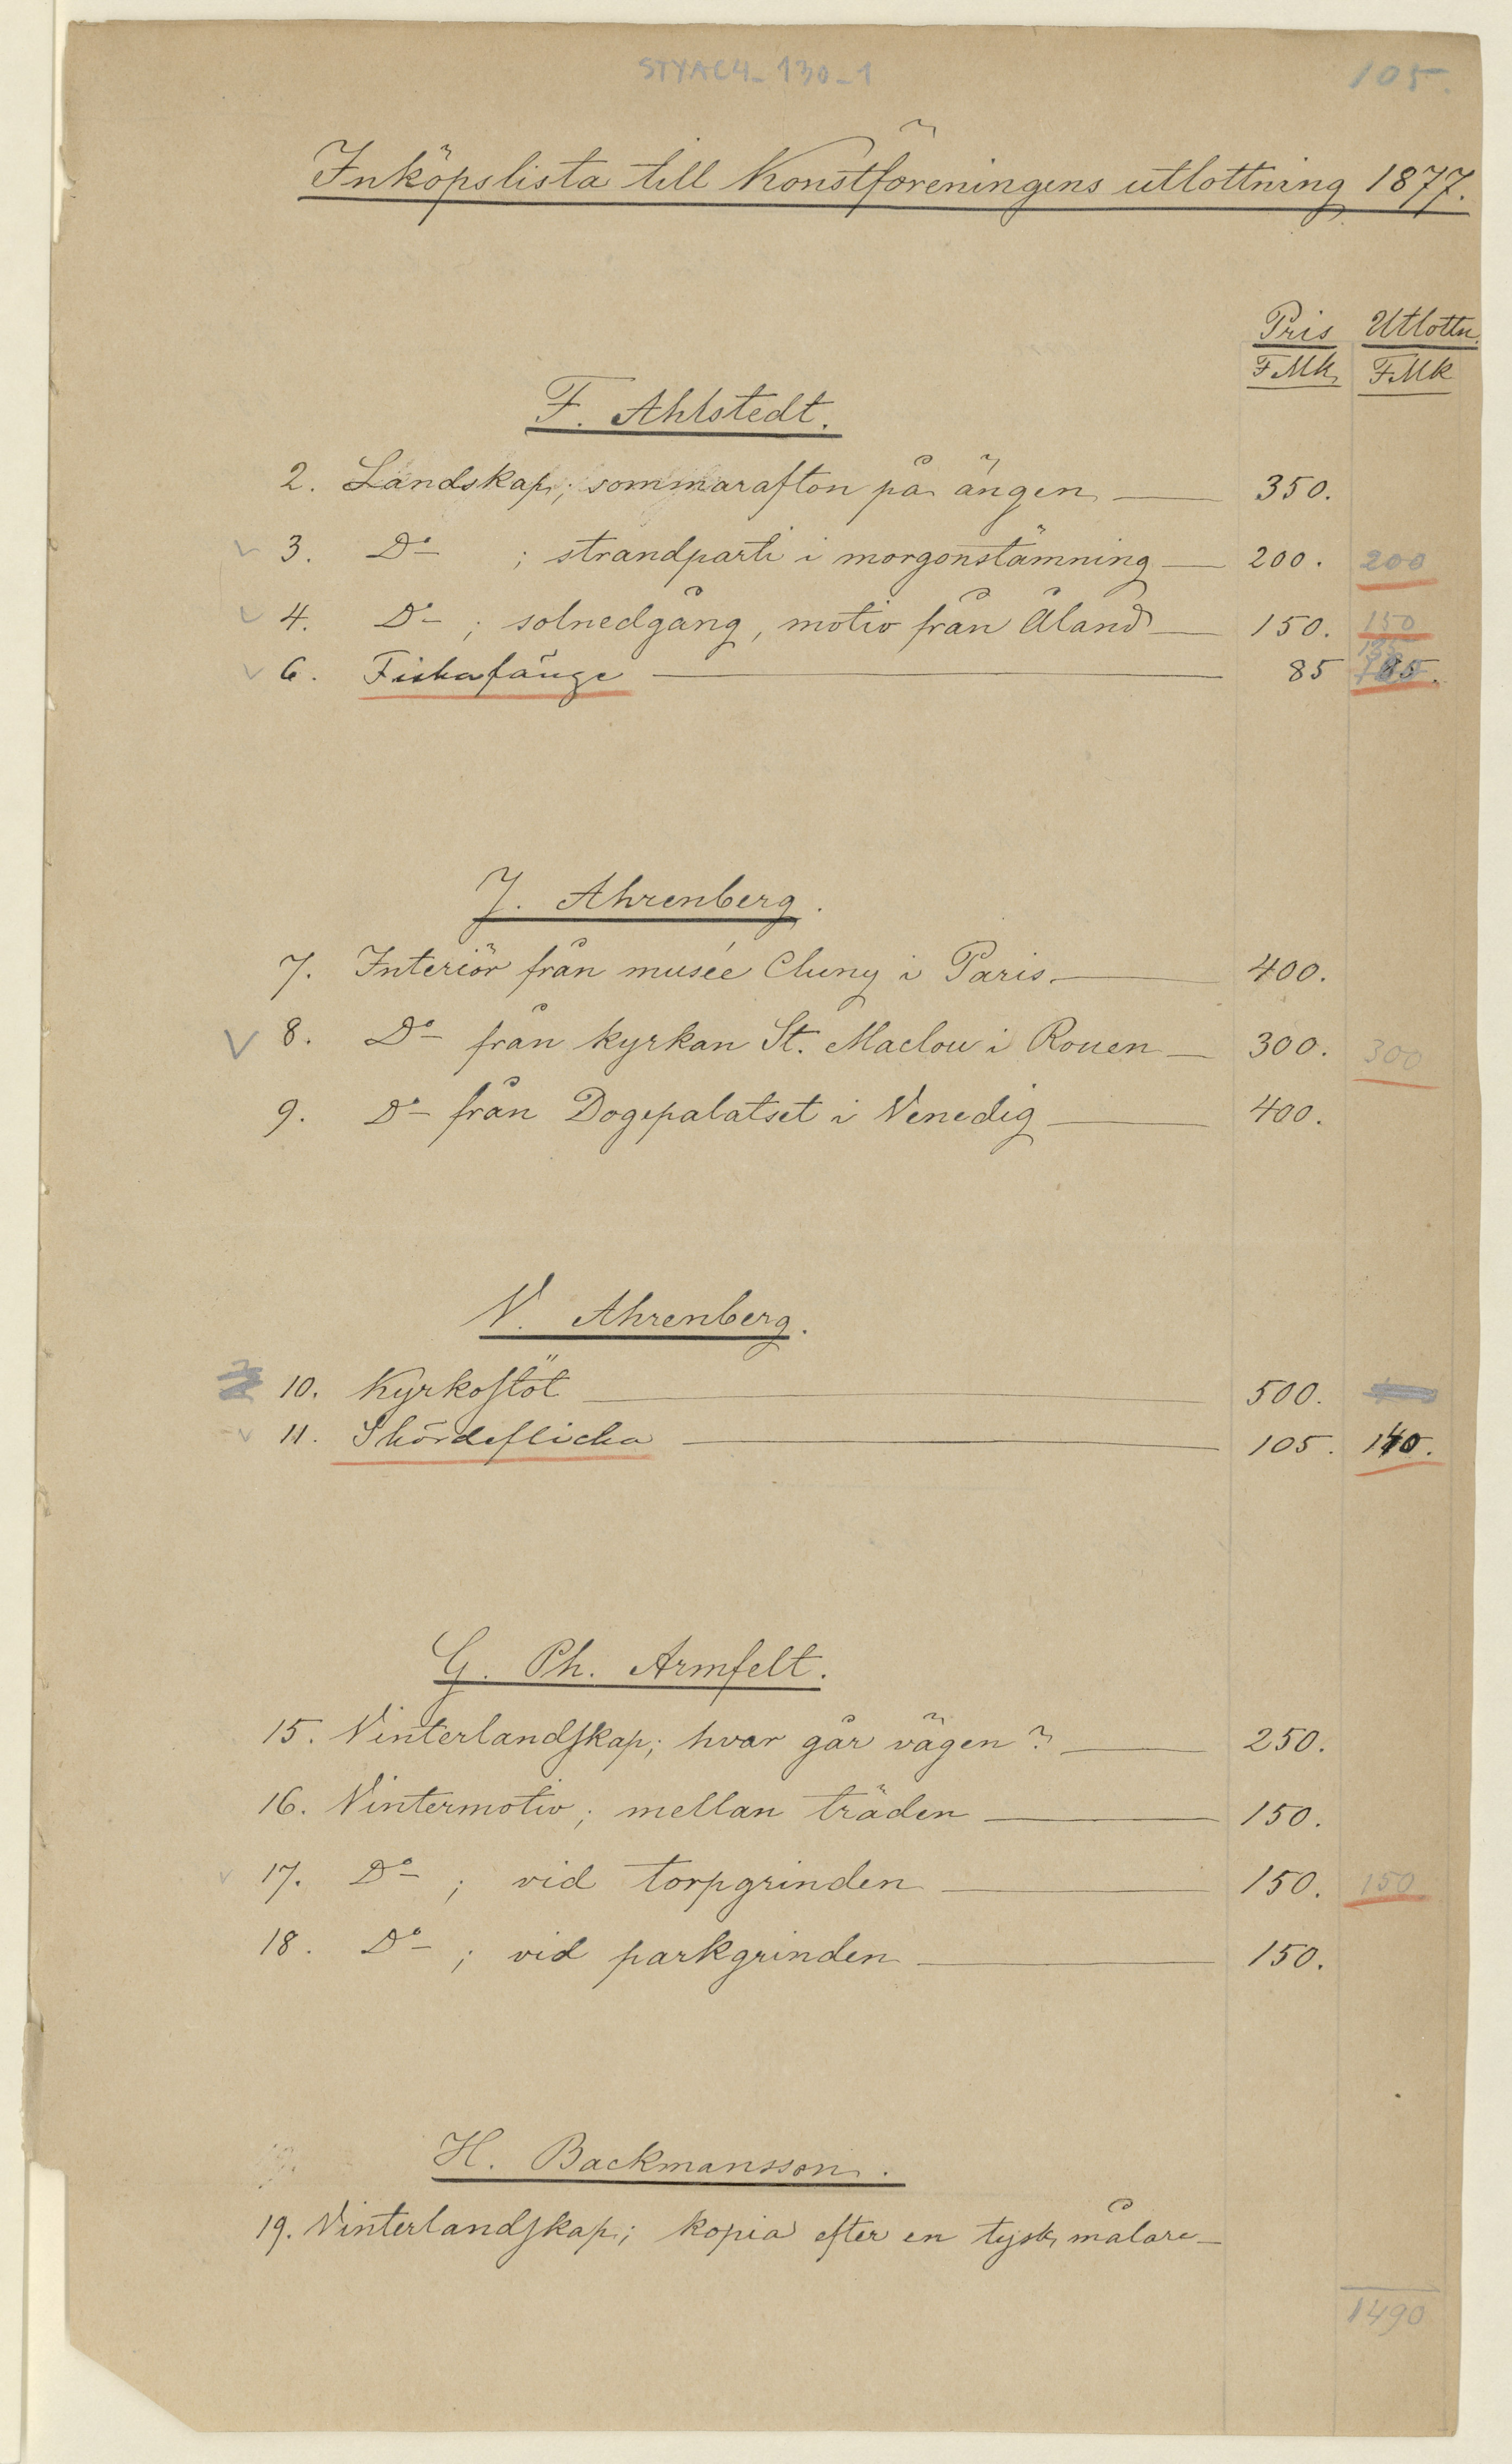 STYAC4_130_1
105.
Inköpslista till Konstföreningens utlottning 1877.
Pris Utlottn.
FMk FMk
F. Ahlstedt.
2. Landskap; sommarafton på ängen 350.
3. Do ; strandparti i morgonstämning 200. 200
4. Do ; solnedgång, motiv från Åland 150. 150
6. Fiskafänge 85 85.
J. Ahrenberg.
7. Interiör från musée Cluny i Paris 400.
V 8. Do från kyrkan St. Maclou i Rouen 300. 300
9. Do från Dogepalatset i Venedig 400.
V. Ahrenberg.
10. Kyrkostöt 500.
11. Skördeflicka 105. 140.
G. Ph. Armfelt.
15. Vinterlandskap; hvar går vägen? 250.
16. Vintermotiv; mellan träden 150.
17. Do ; vid torpgrinden 150. 150
18. Do ; vid parkgrinden 150.
H. Backmansson.
19. Vinterlandskap; kopia efter en tysk målare
1490